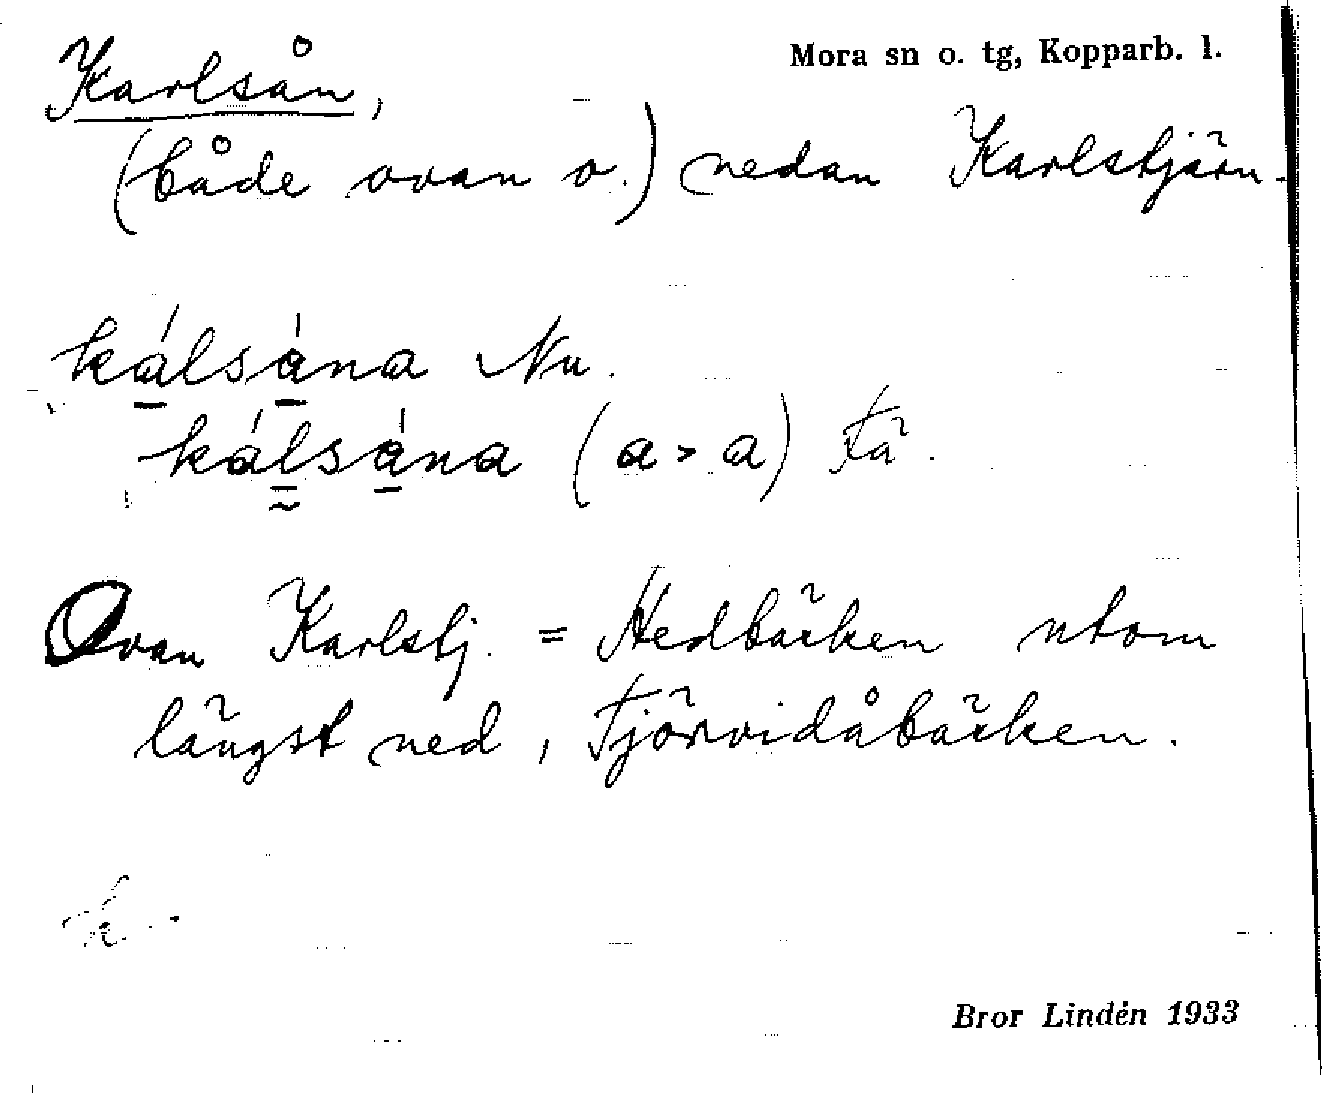 Karlsån,
Mora sn o. tg, Kopparb. l.
(både ovan o.) nedan Karlstjärn.
kálsána Nu.
kálsána (a > a) Fä.
Ovan Karlstj. = Hedbäcken utom
längst ned, Fjörvidåbäcken.
k.
Bror Lindén 1933